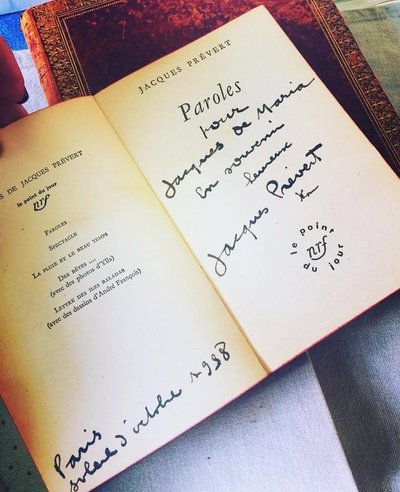 S DE JACQUES PRÉVERT
le point du jour
nrf
PAROLES
SPECTACLE
LA PLUIE ET LE BEAU TEMPS
DES BÊTES ....
(avec des photos d'Ylla)
LETTRE DES ILES BALADAR
(avec des dessins d'André François)
Paris
soleil d'octobre
JACQUES PRÉVERT
Paroles
pour
Jacques De Maria
en souvenir
heureux
Jacques Prévert
le point
nrf
du jour